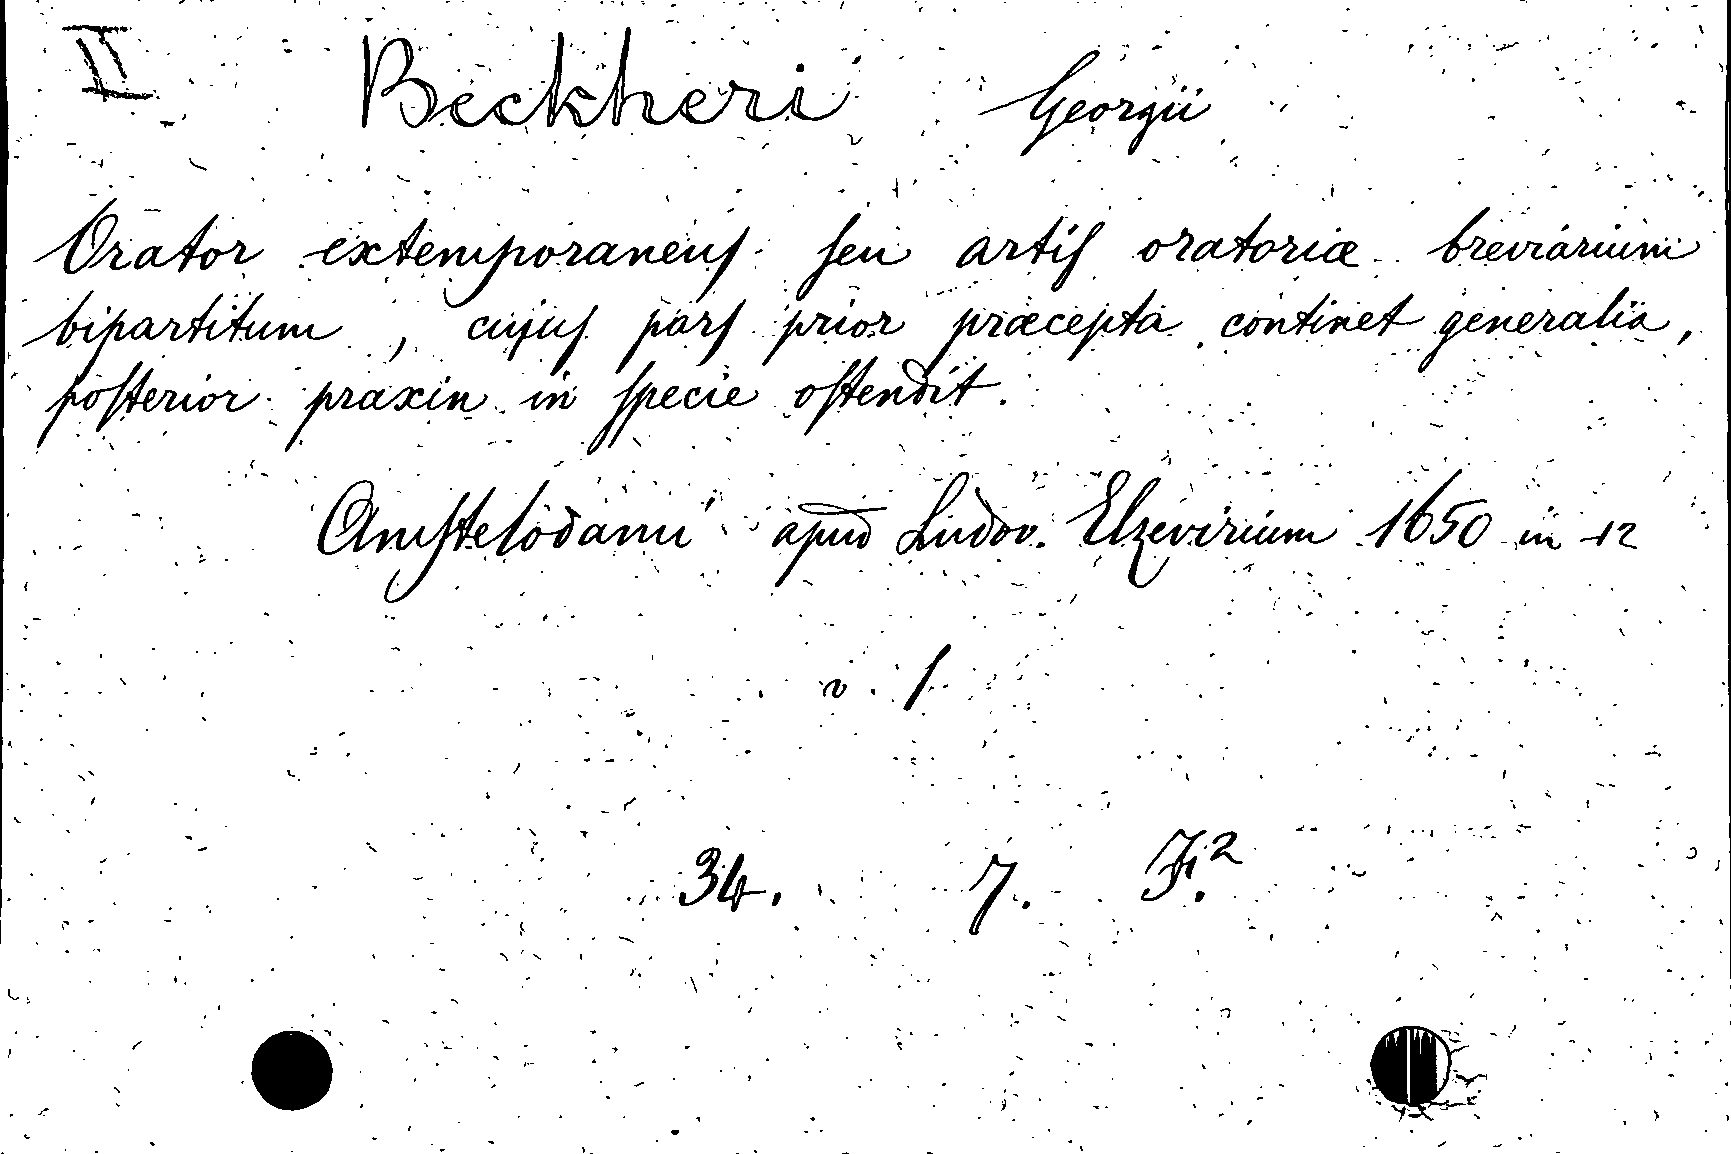 II Beckheri Georgii
Orator extemporaneuſ ſeu artiſ oratoriæ breviarium
bipartitum, cujuſ parſ prior præcepta continet generalia,
poſterior praxin in ſpecie oſtendit.
Amſtelodami apud Ludov. Elzevirium 1650 in 12
v. ſ
34. 7. F.²